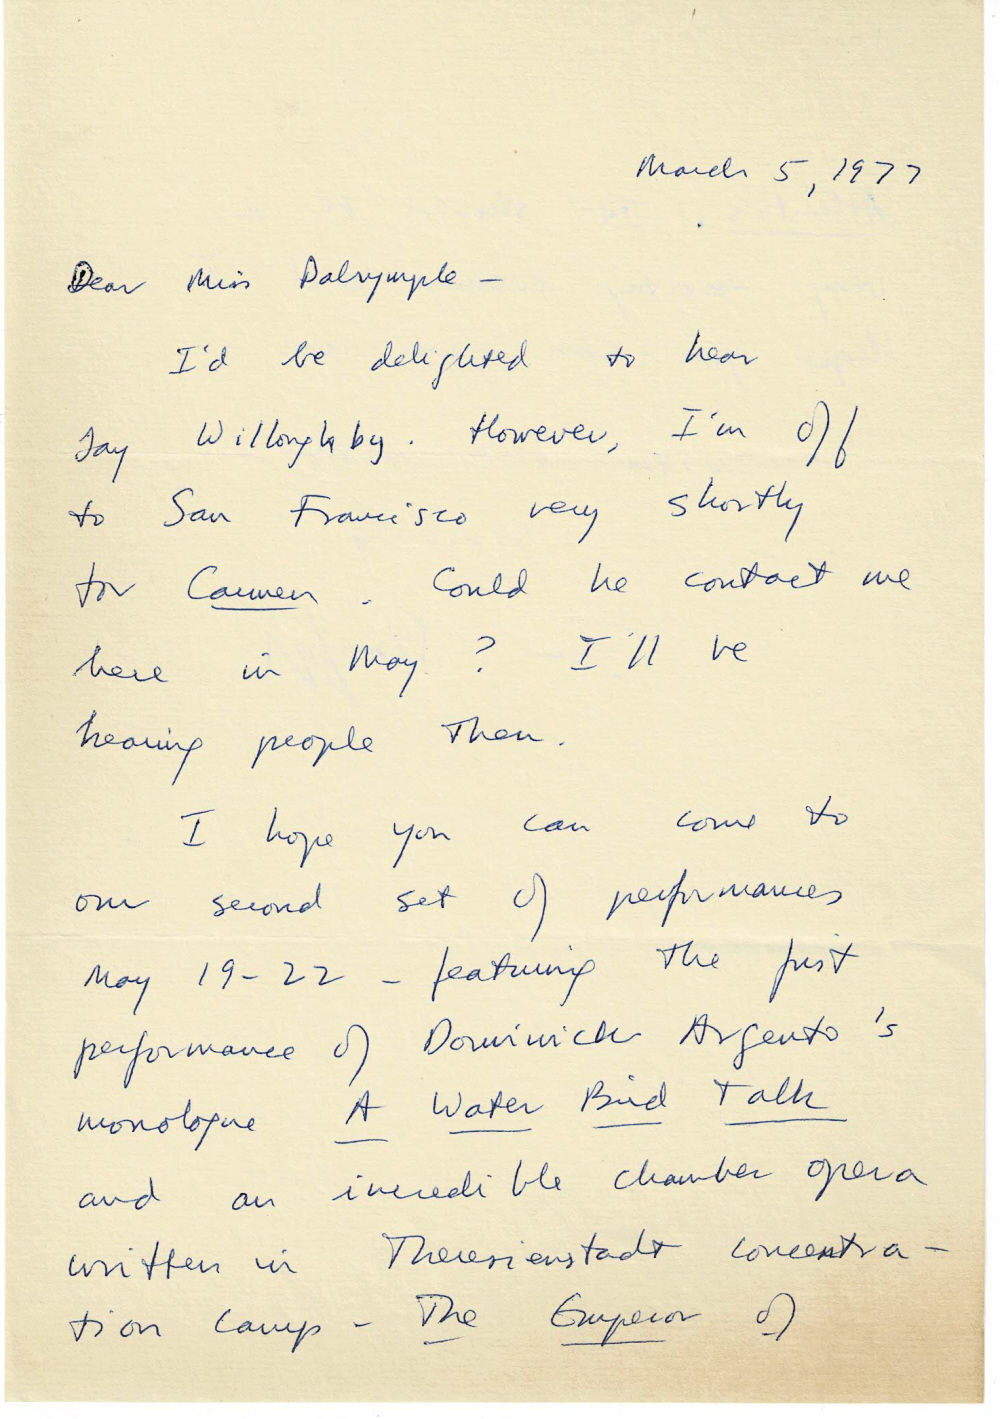 March 5, 1977
Dear Miss Dalrymple –
I'd be delighted to hear
Jay Willoughby. However, I'm off
to San Francisco very shortly
for Carmen. Could he contact me
here in May? I'll be
hearing people then.
I hope you can come to
our second set of performances
May 19-22 – featuring the first
performance of Dominick Argento's
monologue A Water Bird Talk
and an incredible chamber opera
written in Theresienstadt concentra-
tion camp – The Emperor of